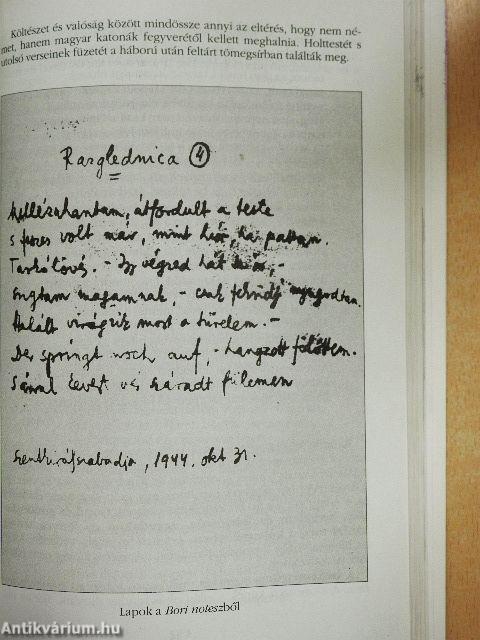 Költészet és valóság között mindössze annyi az eltérés, hogy nem né-
met, hanem magyar katonák fegyverétől kellett meghalnia. Holttestét s
utolsó verseinek füzetét a háború után feltárt tömegsírban találták meg.
Razglednica 4
Mellézuhantam, átfordult a teste
s feszes volt már, mint húr, ha pattan.
Tarkólövés. - Így végzed hát te is, -
súgtam magamnak, - csak feküdj nyugodtan.
Halált virágzik most a türelem. -
Der springt noch auf, - hangzott fölöttem.
Sárral kevert vér száradt fülemen
Szentkirályszabadja, 1944. okt 31.
Lapok a Bori noteszből
Antikvárium.hu